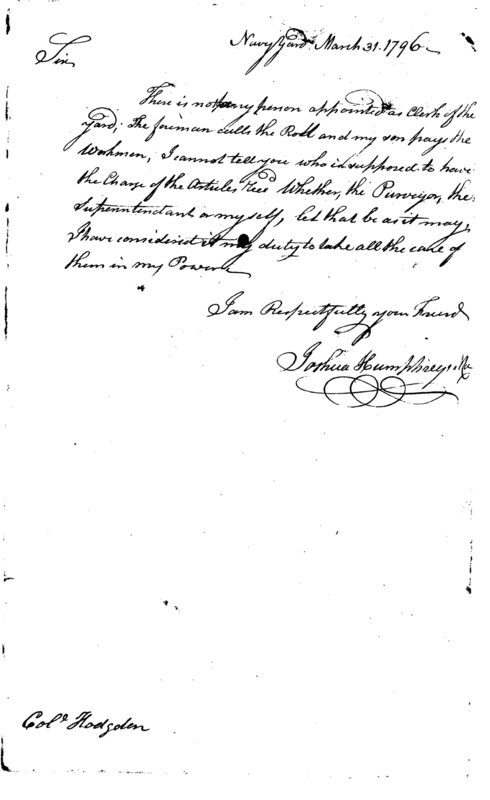 Navy Yard March 31. 1796
Sir
There is not any person appointed as Clerk of the
Yard; The foreman calls the Roll and my son pays the
Workmen, I cannot tell you who is supposed to have
the Charge of the Articles Recd Whether, the Purveyor, the
Superentendant or myself, let that be as it may,
I have considered it my duty to take all the care of
them in my Power
I am Respectfully your Friend
Joshua Humphreys
Colo Hodgden